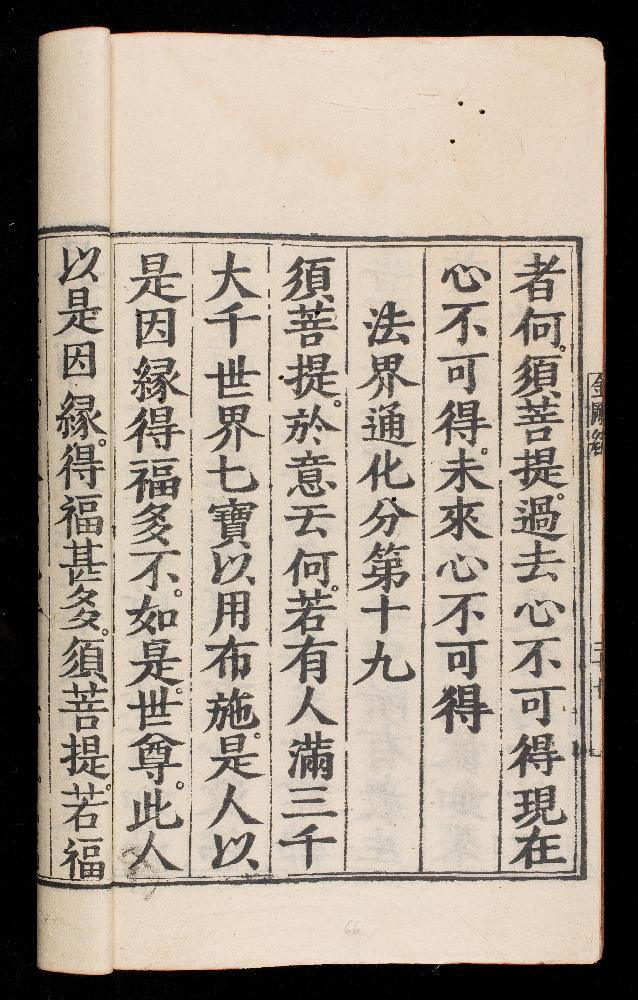 者何。須菩提。過去心不可得現在
心不可得。未來心不可得
法界通化分第十九
須菩提。於意云何。若有人滿三千
大千世界七寶以用布施。是人以
是因緣得福多不。如是。世尊。此人
以是因緣。得福甚多。須菩提。若福
66